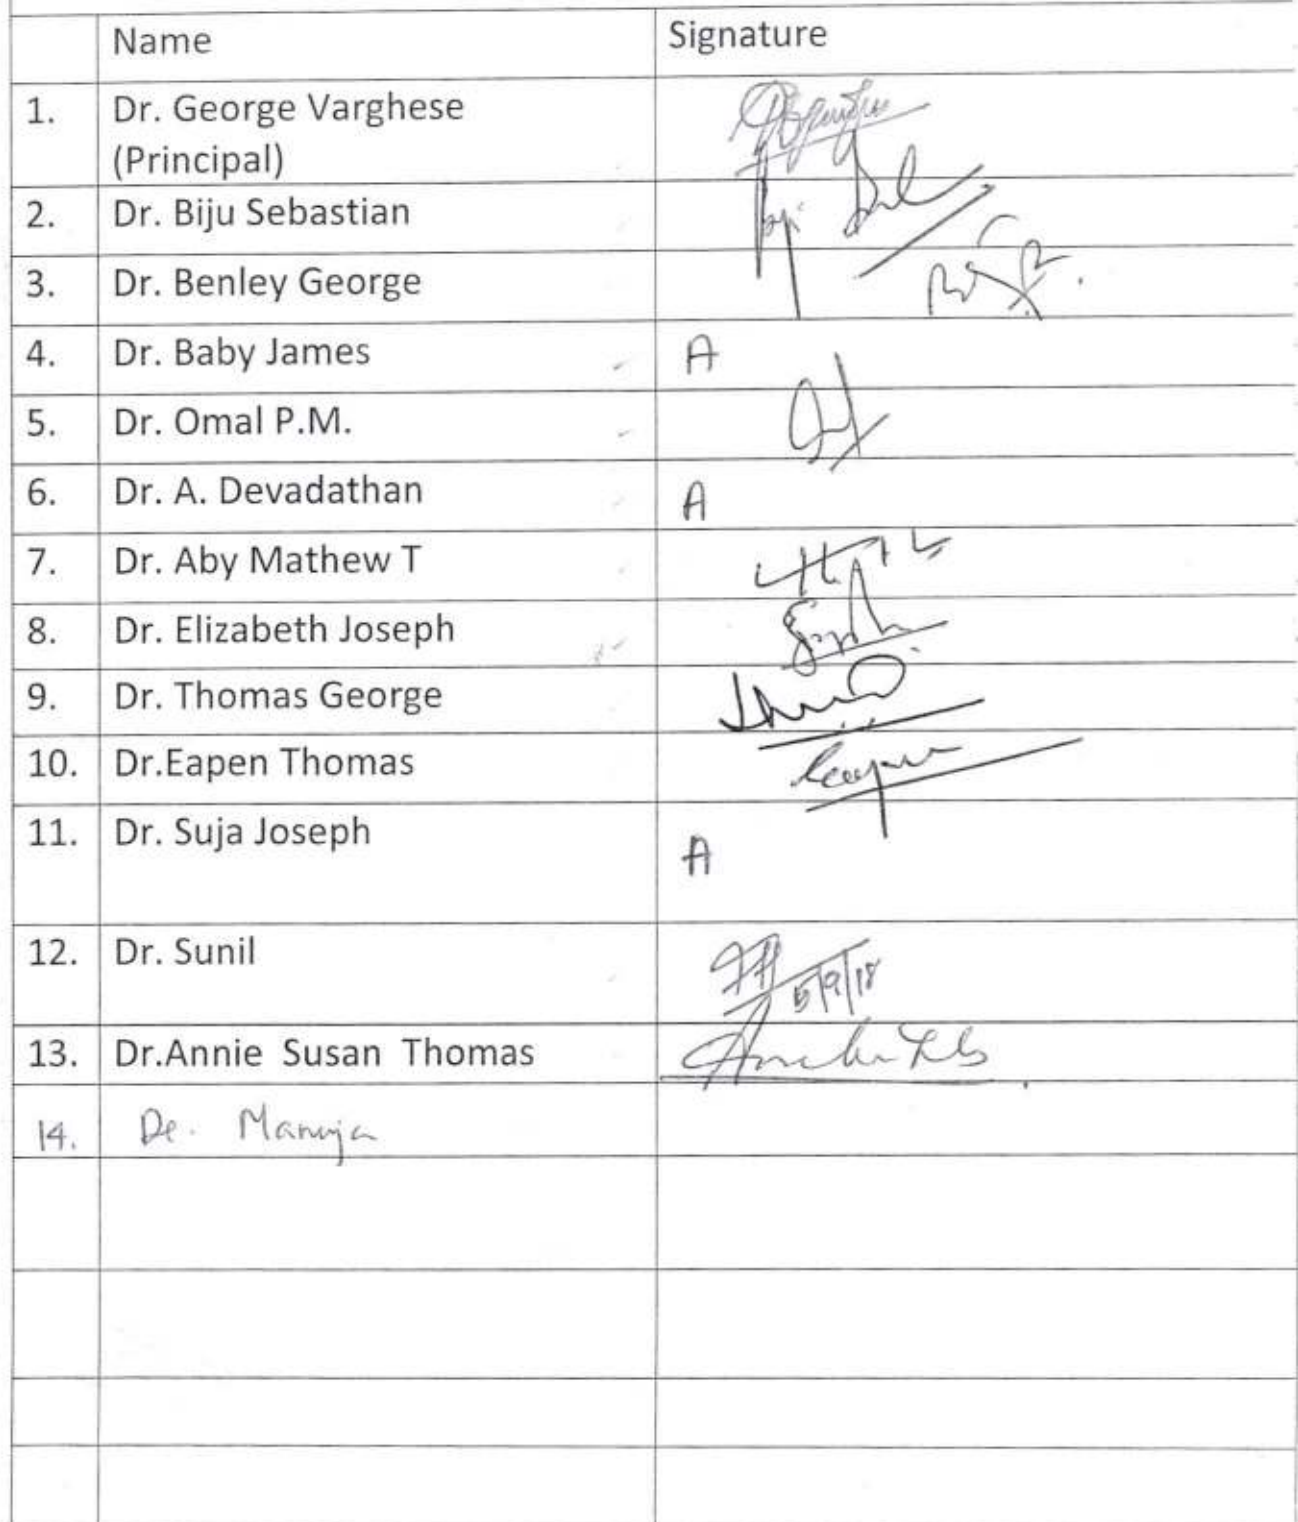 Name Signature
1. Dr. George Varghese
(Principal)
2. Dr. Biju Sebastian
3. Dr. Benley George
4. Dr. Baby James A
5. Dr. Omal P.M.
6. Dr. A. Devadathan A
7. Dr. Aby Mathew T
8. Dr. Elizabeth Joseph
9. Dr. Thomas George
10. Dr.Eapen Thomas
11. Dr. Suja Joseph A
12. Dr. Sunil 5/9/18
13. Dr.Annie Susan Thomas
14. Dr. Manuja